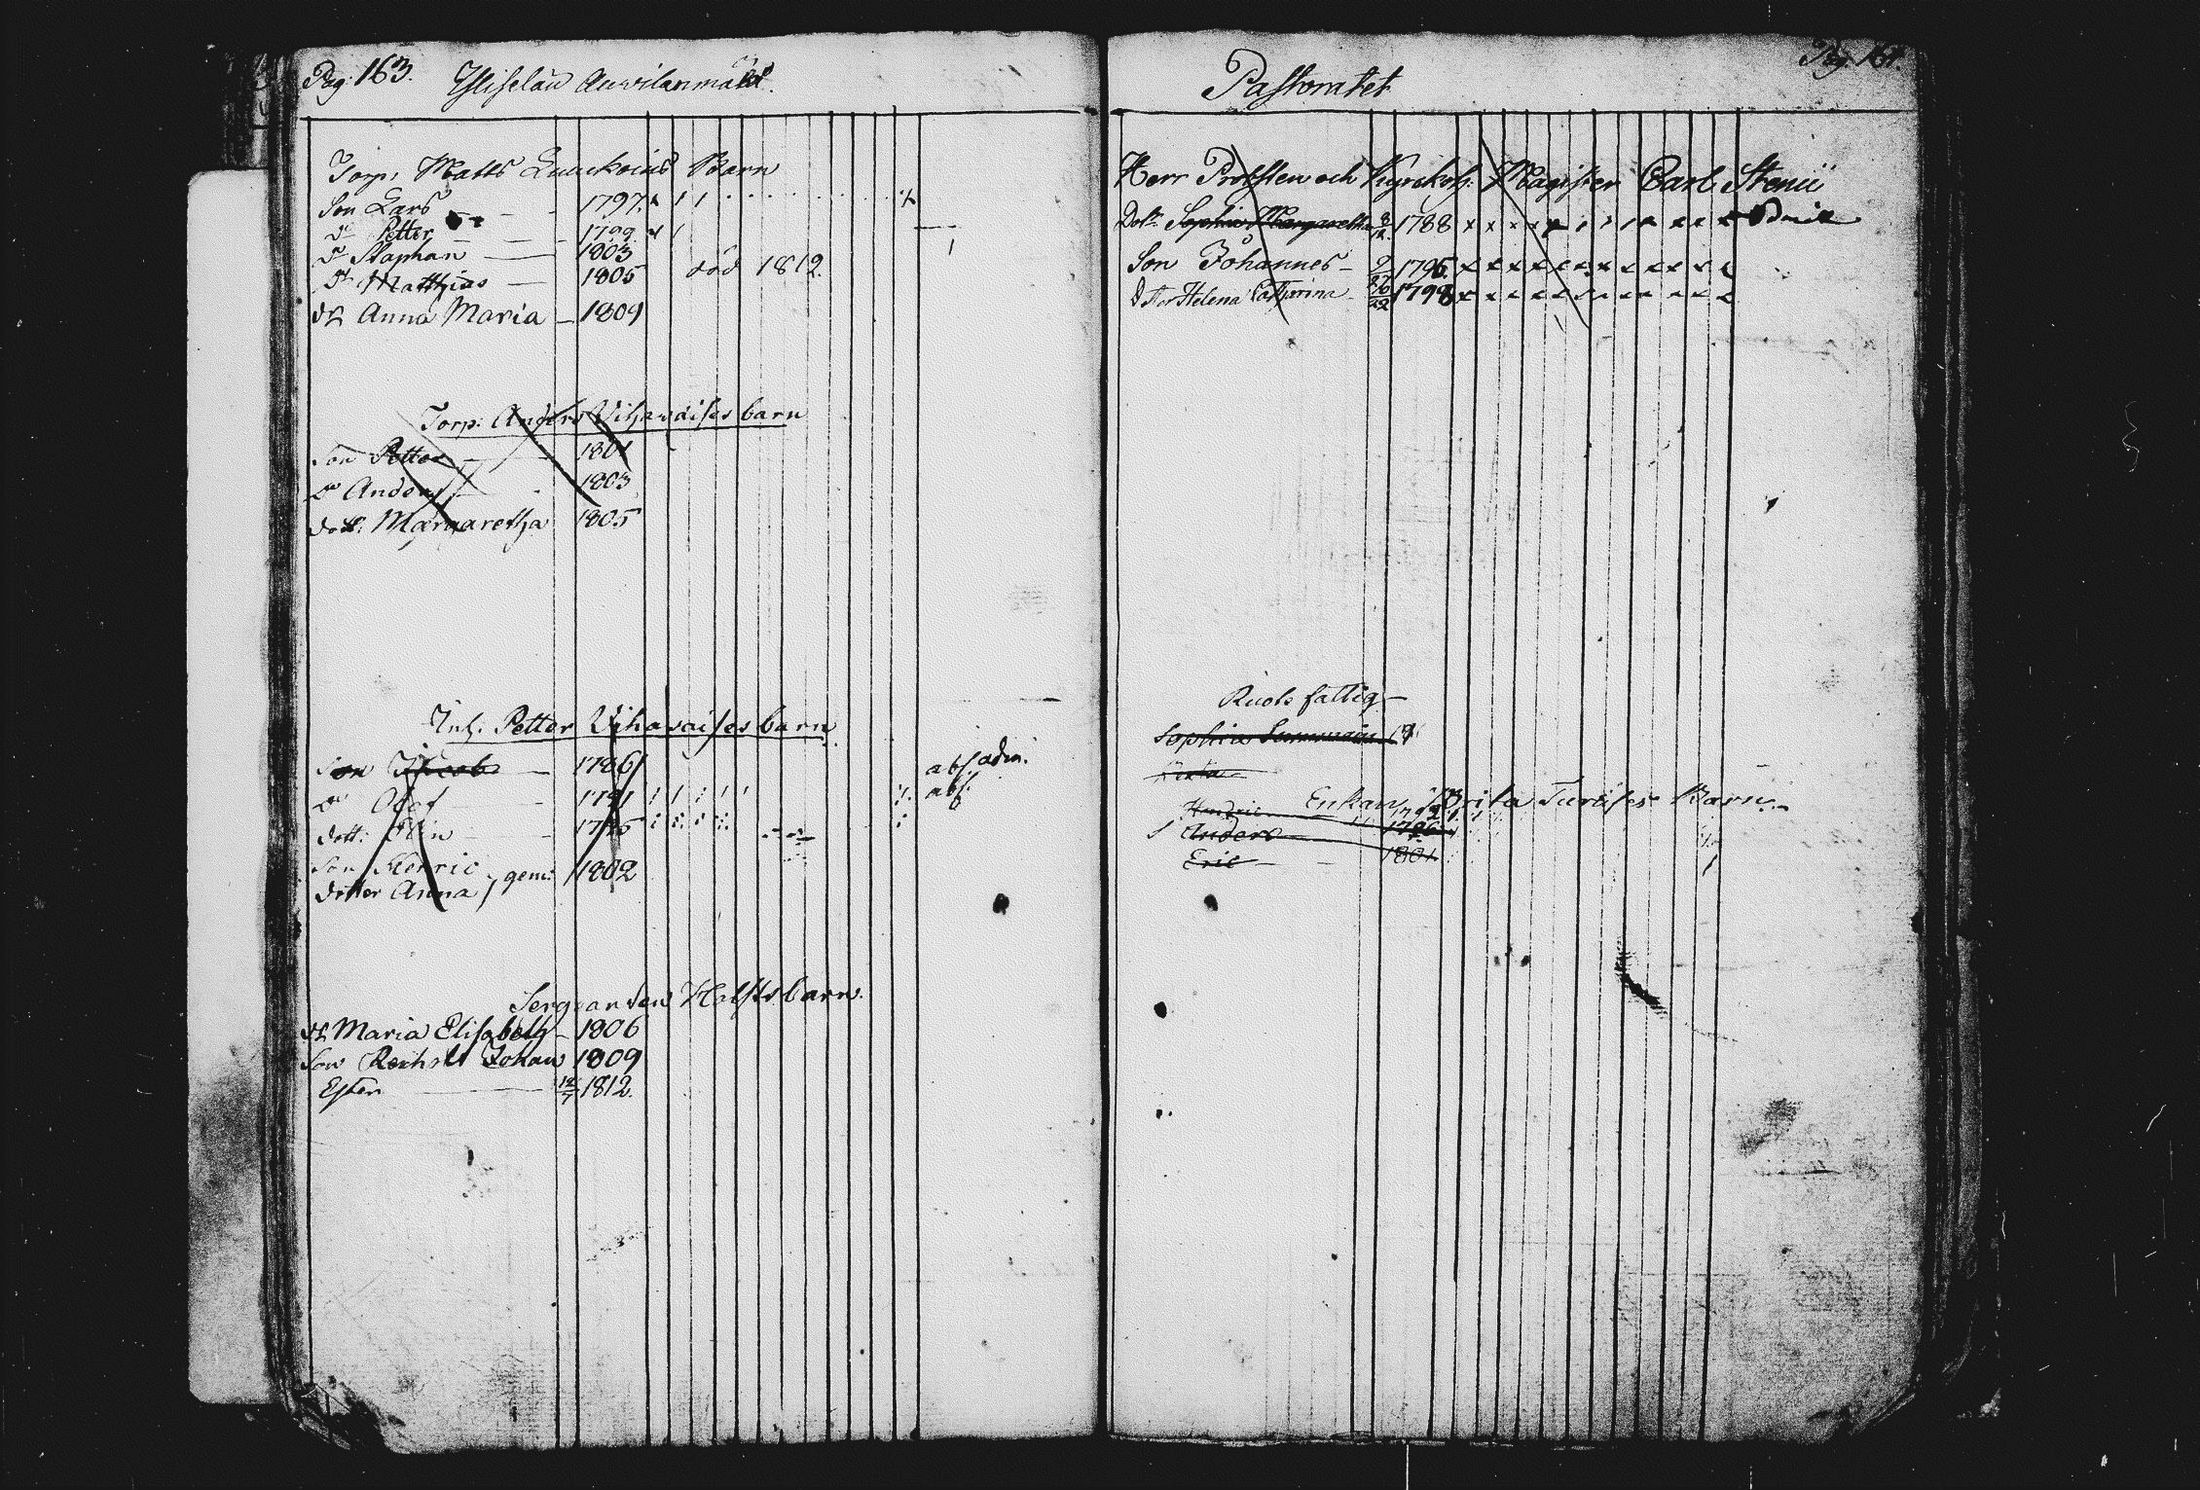 Pag. 163.
Torp. Matts Barn
Son Lars 1797.
dº Petter 1799
dº Staphan 1803
dº Matthias 1805 död 1812.
dr Anna Maria 1809
Torp: Anders Vihavaises barn
Son Petter 1801
dº Anders 1803
dott: Margaretha 1805
Inh. Petter Vihavaises barn
Son Jacob 1786 abs. adm.
dº Olof 1791 abs.
dott: Elin 1795
Son Henric
dotter Anna gem: 1802
Sergeanten barn.
dr Maria Elisabeth 1806
Son Johan 1809
Ester 12/7 1812.
Pastoratet
Herr Probsten och Kyrckoh: Magister Carl Stenii
Dotr Sophia Margaretha 1788
Son Johannes 1795
dotter Helena Catharina 1798
Ruots fattig
Sophia
Enkan Brita Barn
Hendric 1792
Anders 1796
Eric 1801